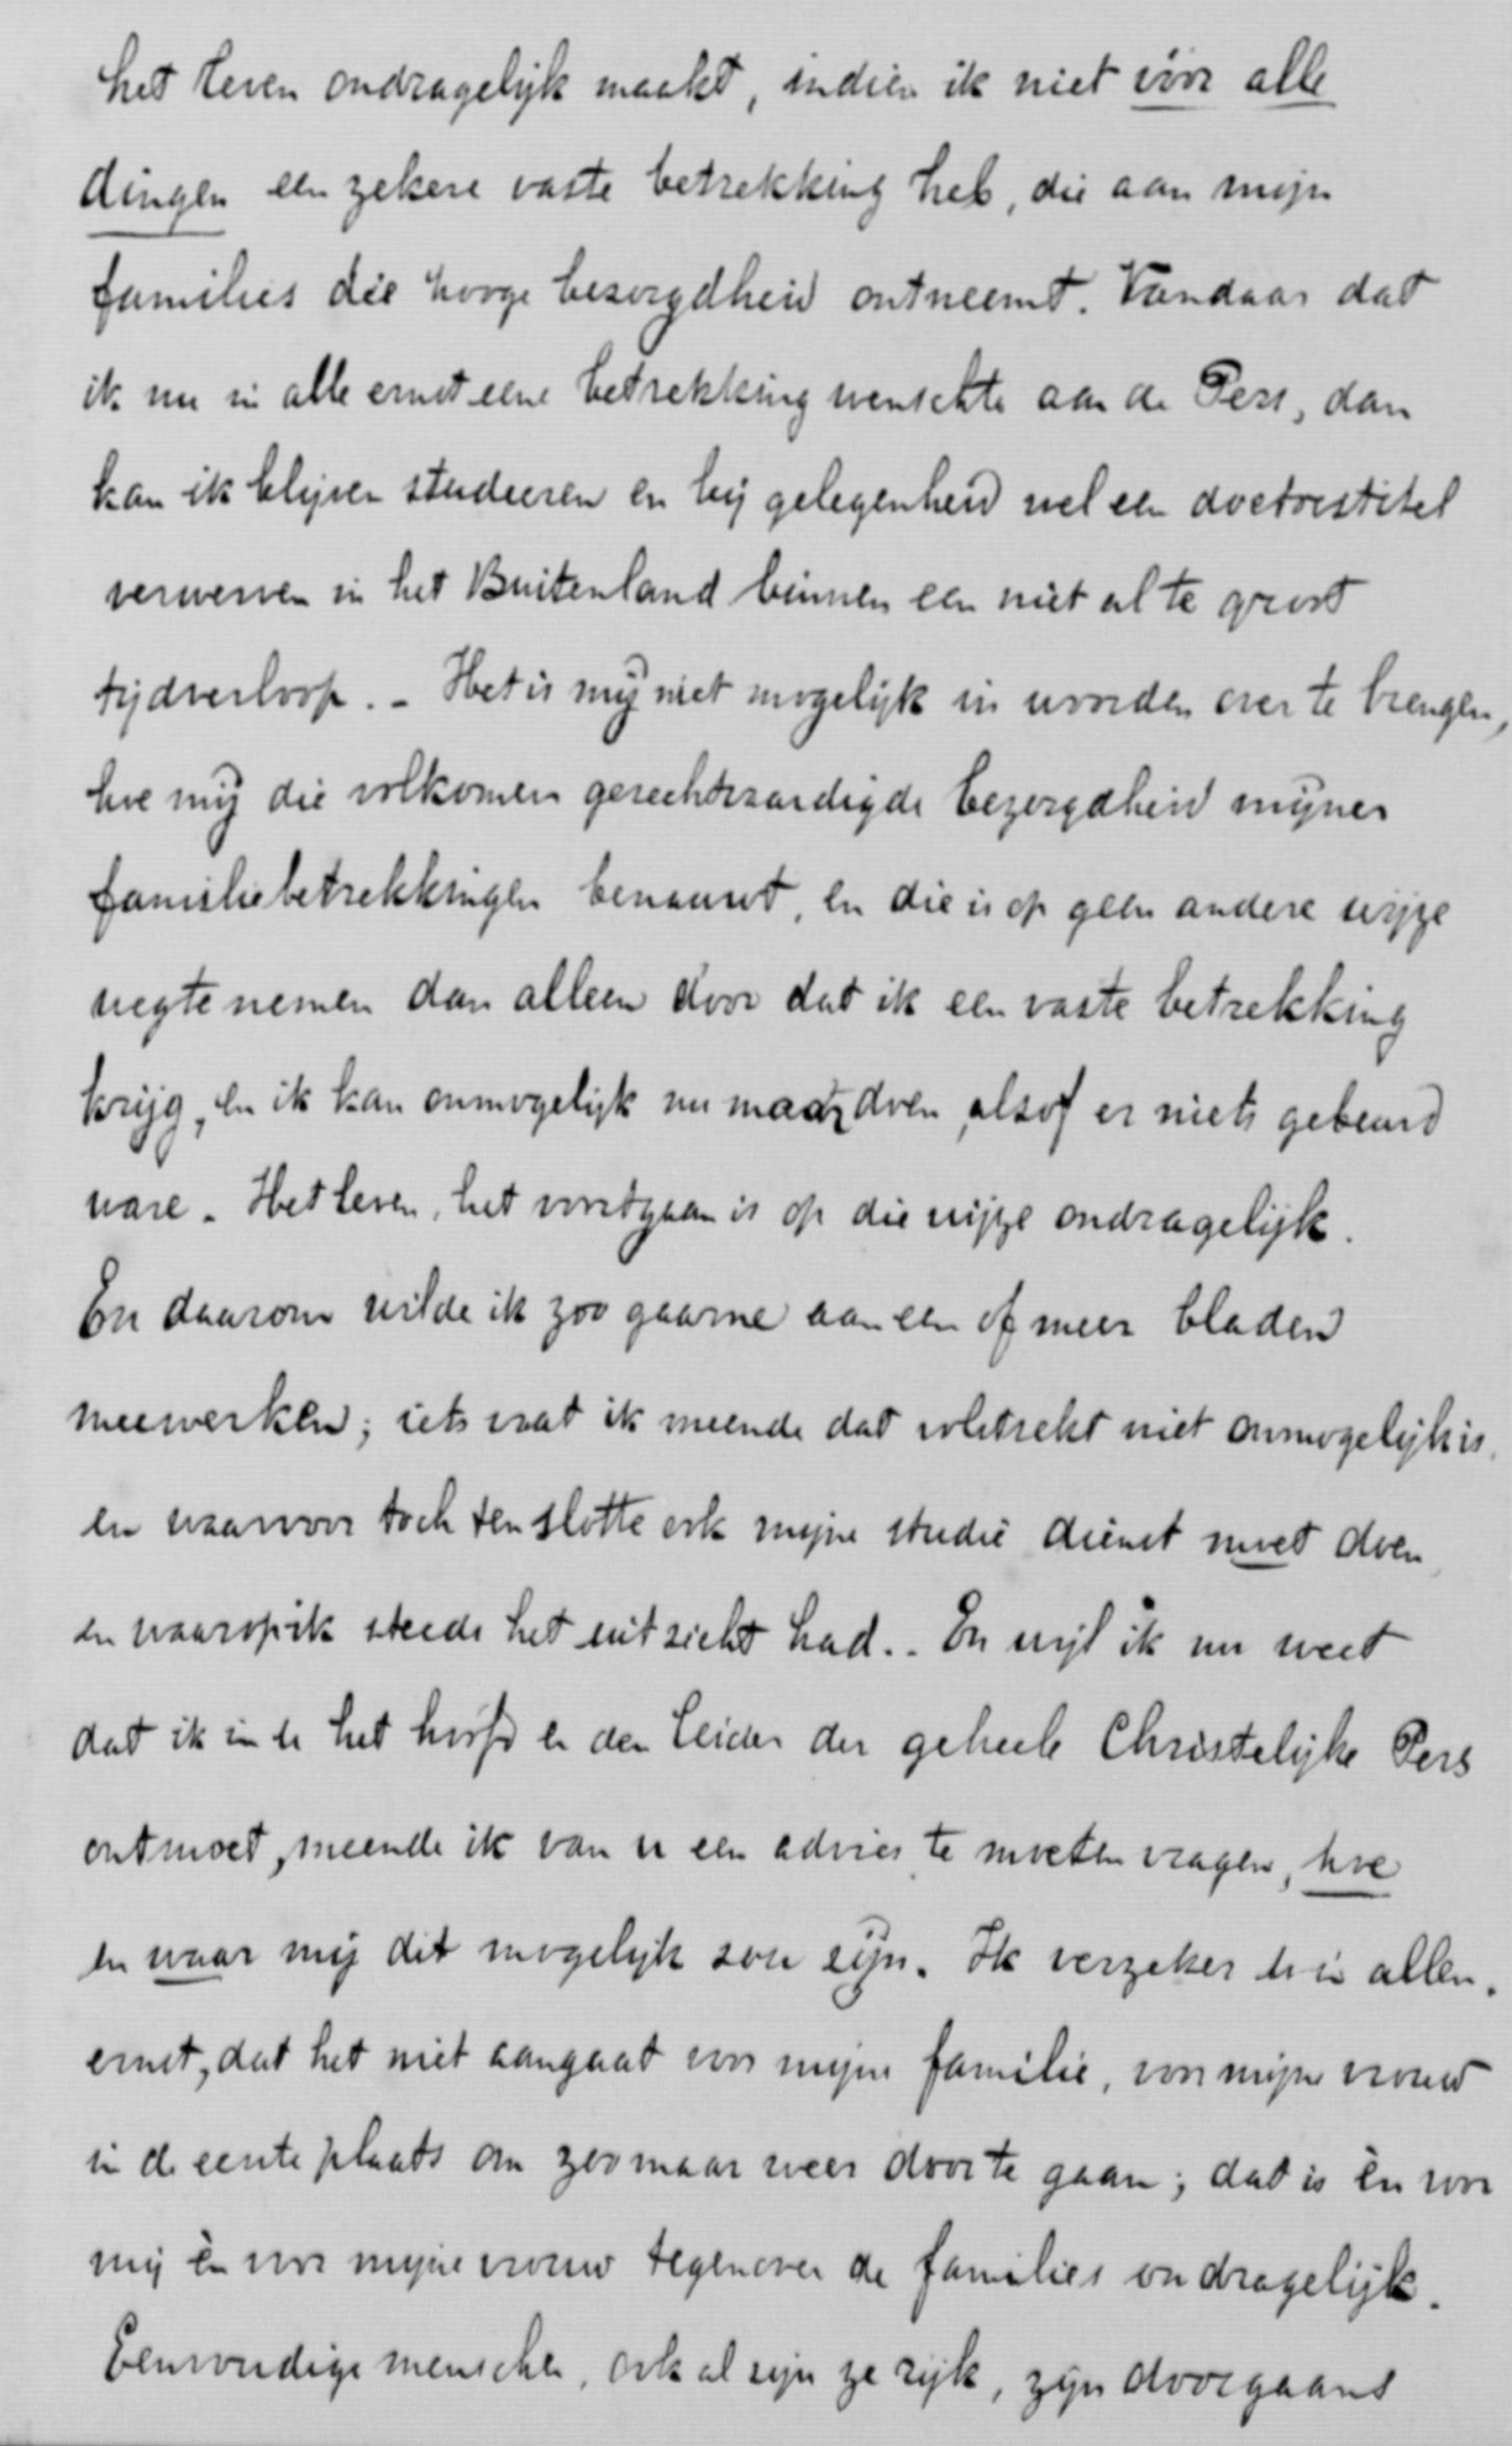 het leven ondragelijk maakt, indien ik niet vóór alle
dingen een zekere vaste betrekking heb, die aan mijn
families die hooge bezorgdheid ontneemt. Vandaar dat
ik nu in alle ernst eene betrekking wenschte aan de Pers, dan
kan ik blijven studeeren en bij gelegenheid wel een doctorstitel
verwerven in het Buitenland binnen een niet al te groot
tijdverloop. - Het is mij niet mogelijk in woorden over te brengen,
hoe mij die volkomen gerechtvaardigde bezorgdheid mijner
familiebetrekkingen benauwt, en die is op geen andere wijze
weg te nemen dan alleen door dat ik een vaste betrekking
krijg, en ik kan onmogelijk nu maar doen, alsof er niets gebeurd
ware. Het leven, het voortgaan is op die wijze ondragelijk.
En daarom wilde ik zoo gaarne aan een of meer bladen
meewerken; iets wat ik meende dat volstrekt niet onmogelijk is,
en waarvoor toch ten slotte ook mijne studie dienst moet doen,
en waarop ik steeds het uitzicht had. - En wijl ik nu weet
dat ik in U het hoofd en den leider der geheele Christelijke Pers
ontmoet, meende ik van U een advies te moeten vragen, hoe
en waar mij dit mogelijk zou zijn. Ik verzeker U in allen
ernst, dat het niet aangaat voor mijne familie, voor mijne vrouw
in de eerste plaats om zoo maar weer door te gaan; dat is èn voor
mij èn voor mijne vrouw tegenover de families ondragelijk.
Eenvoudige menschen, ook al zijn ze rijk, zijn doorgaans